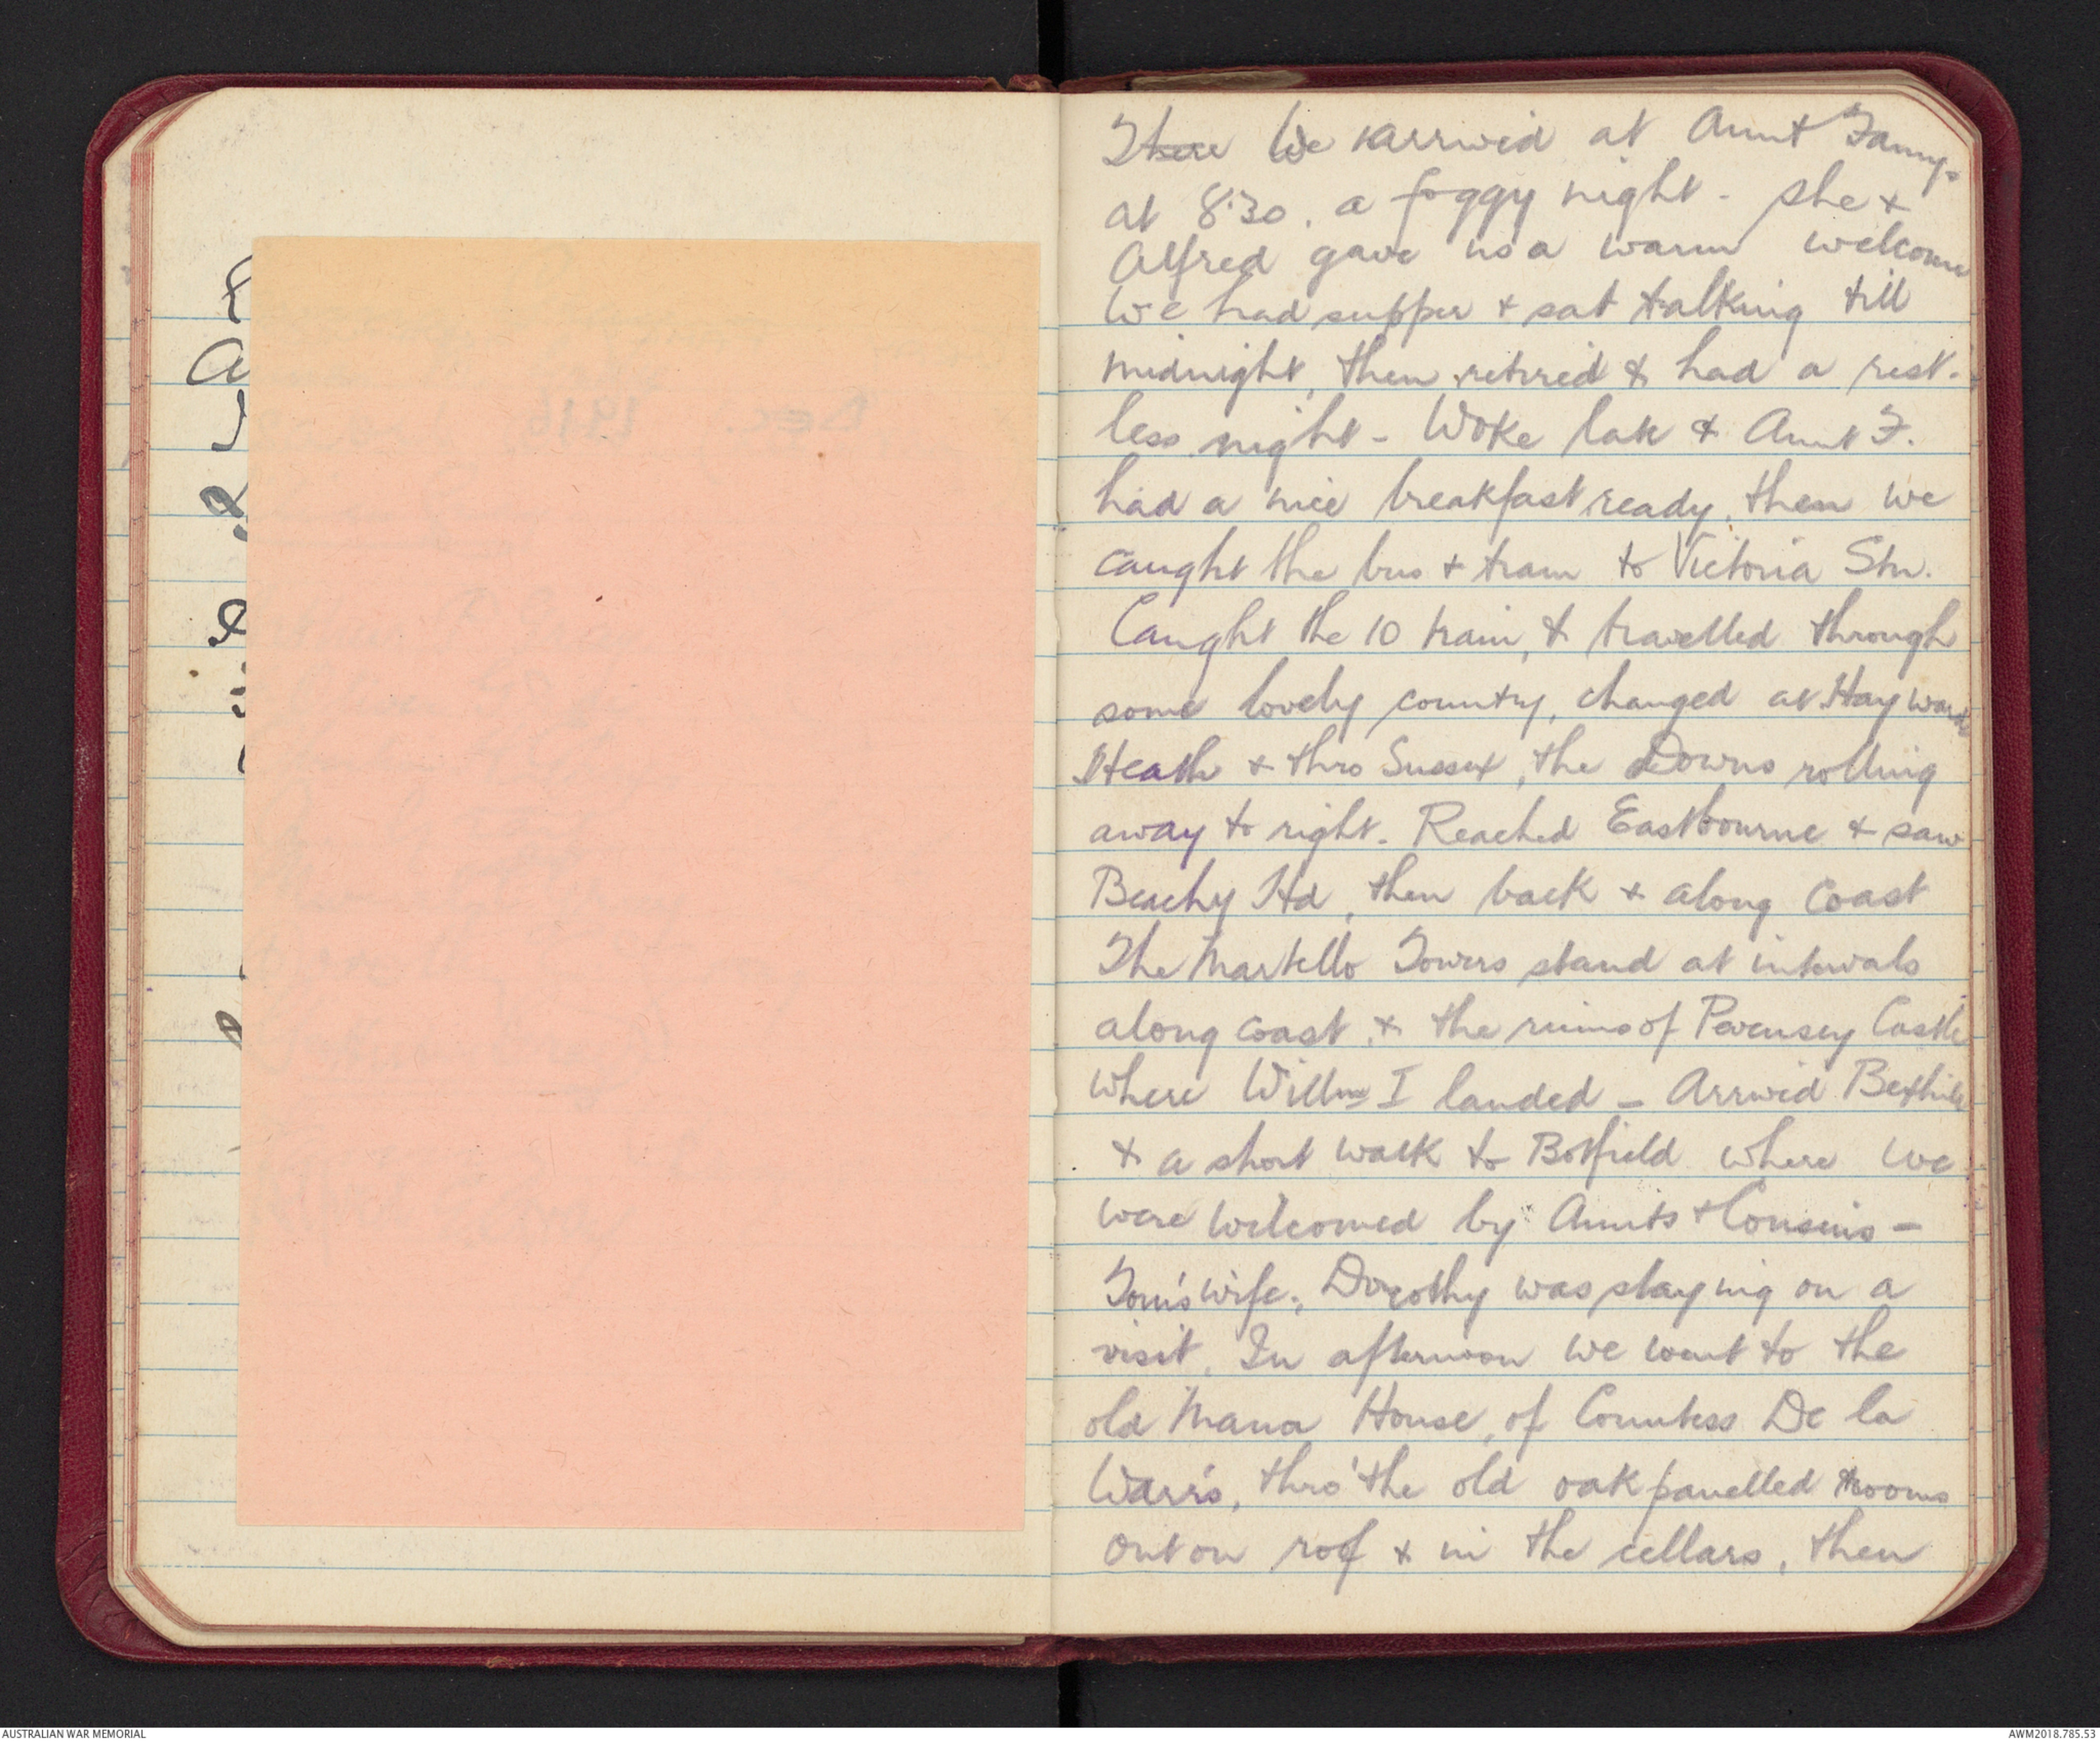 There We arrived at Aunt Fanny's
at 8.30. a foggy night - she +
Alfred gave us a warm welcome
We had supper + sat talking till
midnight, then retired & had a rest-
less night - Woke late & Aunt F.
had a nice breakfast ready, then we
caught the bus + tram to Victoria Stn.
Caught the 10 train, & travelled through
some lovely country, changed at Haywards
Heath + thro Sussex, the Downs rolling
away to right. Reached Eastbourne + saw
Beachy Hd, then back + along Coast
The Martello Towers stand at intervals
along coast, & the ruins of Pevensey Castle
where Willm I landed - Arrived Bexhill
& a short walk to Botfield where we
were welcomed by Aunts + Cousins -
Tom's wife, Dorothy was staying on a
visit. In afternoon we went to the
old Mana House, of Countess De la
Warr's, thro' the old oak panelled rooms
out on roof & in the cellars, then
AUSTRALIAN WAR MEMORIAL
AWM2018.785.53